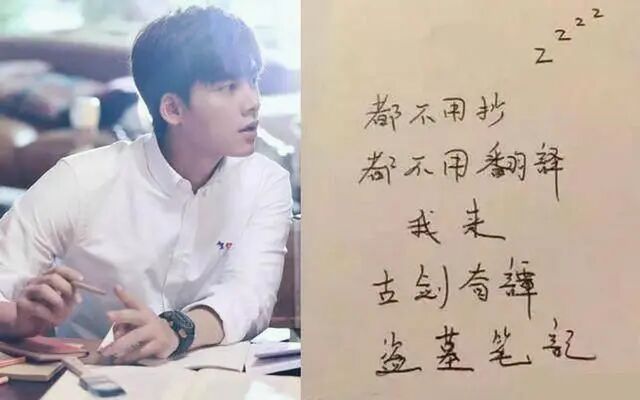 zzzz
都不用抄
都不用翻譯
我来
古剑奇譚
盗墓笔記